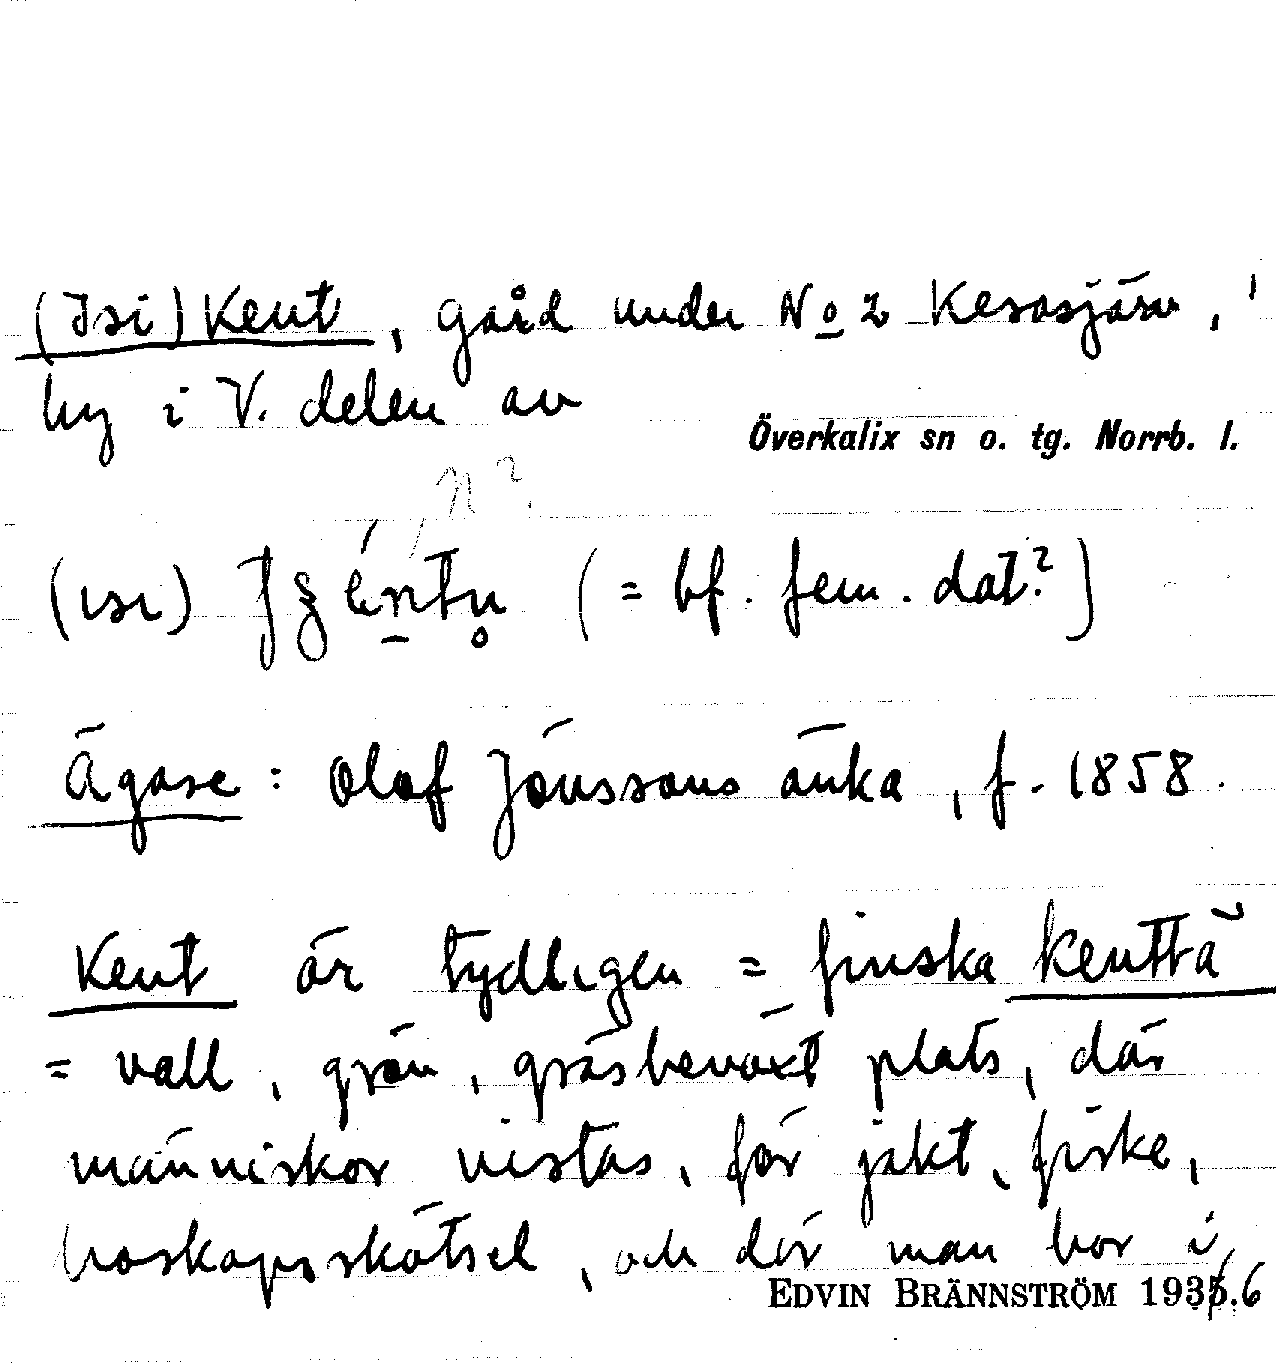 (Isi)Kent, gård under No 2 Kesasjärv,
by i V. delen av
Överkalix sn o. tg. Norrb. l.
n?
(ısı) (= bf. fem. dat?)
Ägare: Olof Jönssons änka, f. 1858.
Kent är tydligen = finska kenttä
= vall, grön, gräsbevaxt plats, där
människor vistas, för jakt, fiske,
boskapsskötsel, och där man bor i
EDVIN BRÄNNSTRÖM 1936